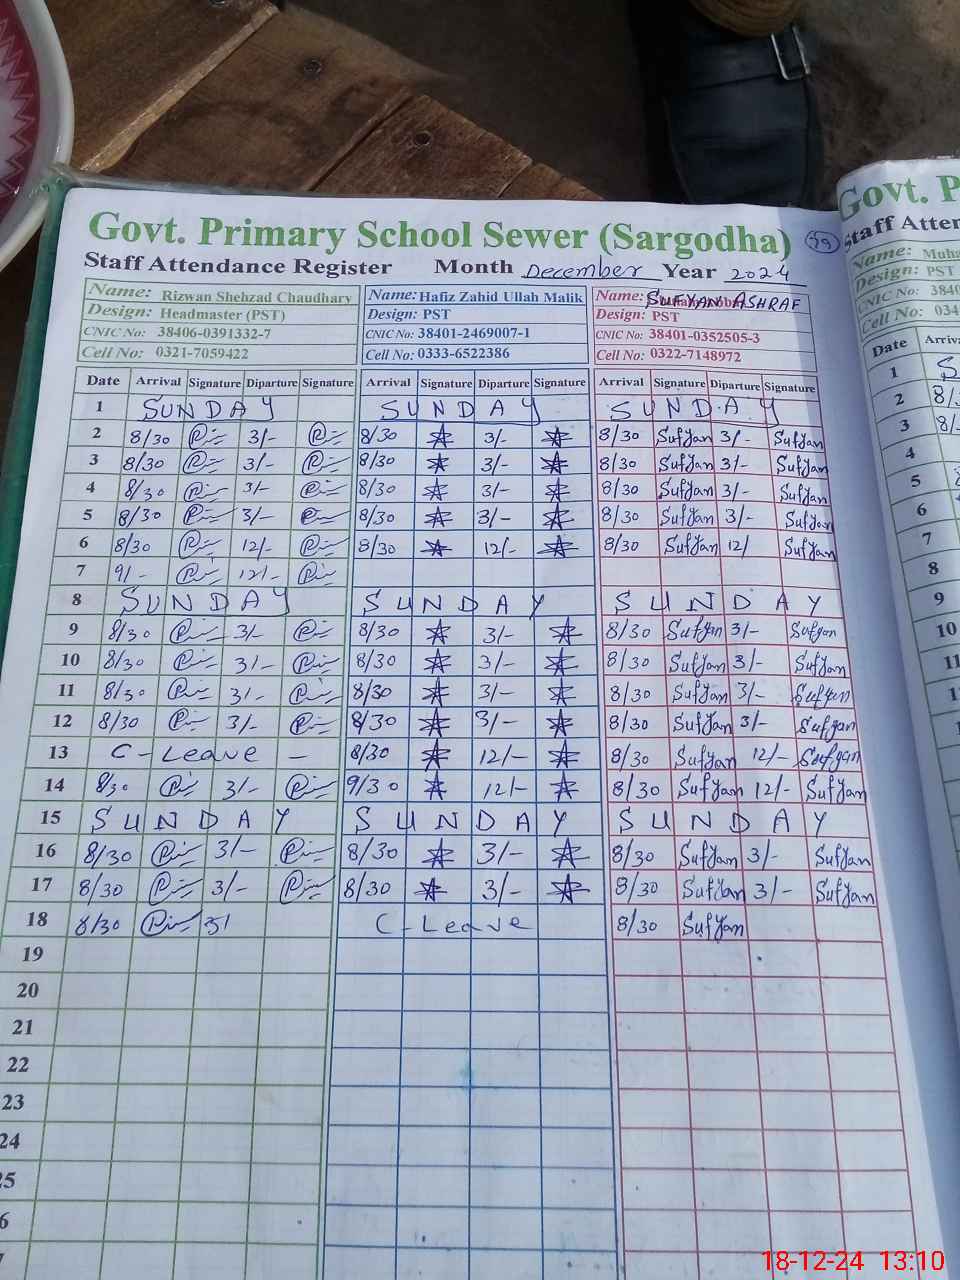 Govt. Primary School Sewer (Sargodha) 59
Staff Attendance Register Month December Year 2024
Name: Rizwan Shehzad Chaudhary Name: Hafiz Zahid Ullah Malik Name: SUFYAN ASHRAF
Design: Headmaster (PST) Design: PST Design: PST
CNIC No: 38406-0391332-7 CNIC No: 38401-2469007-1 CNIC No: 38401-0352505-3
Cell No: 0321-7059422 Cell No: 0333-6522386 Cell No: 0322-7148972
Date Arrival Signature Diparture Signature Arrival Signature Diparture Signature Arrival Signature Diparture Signature
1 SUNDAY SUNDAY SUNDAY
2 8/30 3/- 8/30 3/- 8/30 Sufyan 3/- Sufyan
3 8/30 3/- 8/30 3/- 8/30 Sufyan 3/- Sufyan
4 8/30 3/- 8/30 3/- 8/30 Sufyan 3/- Sufyan
5 8/30 3/- 8/30 3/- 8/30 Sufyan 3/- Sufyan
6 8/30 12/- 8/30 12/- 8/30 Sufyan 12/ Sufyan
7 9/- 12/-
8 SUNDAY SUNDAY SUNDAY
9 8/30 3/- 8/30 3/- 8/30 Sufyan 3/- Sufyan
10 8/30 3/- 8/30 3/- 8/30 Sufyan 3/- Sufyan
11 8/30 3/- 8/30 3/- 8/30 Sufyan 3/- Sufyan
12 8/30 3/- 8/30 3/- 8/30 Sufyan 3/- Sufyan
13 C-Leave - 8/30 12/- 8/30 Sufyan 12/- Sufyan
14 8/30 3/- 9/30 12/- 8/30 Sufyan 12/- Sufyan
15 SUNDAY SUNDAY SUNDAY
16 8/30 3/- 8/30 3/- 8/30 Sufyan 3/- Sufyan
17 8/30 3/- 8/30 3/- 8/30 Sufyan 3/- Sufyan
18 8/30 3/ C-Leave 8/30 Sufyan
19
20
21
22
23
24
25
Govt. P
Staff Atten
Name: Muha
Design: PST
CNIC No: 3840
Cell No: 034
Date Arriva
1 S
2 8/3
3 8/
4
5
6
7
8
9
10
11
18-12-24 13:10